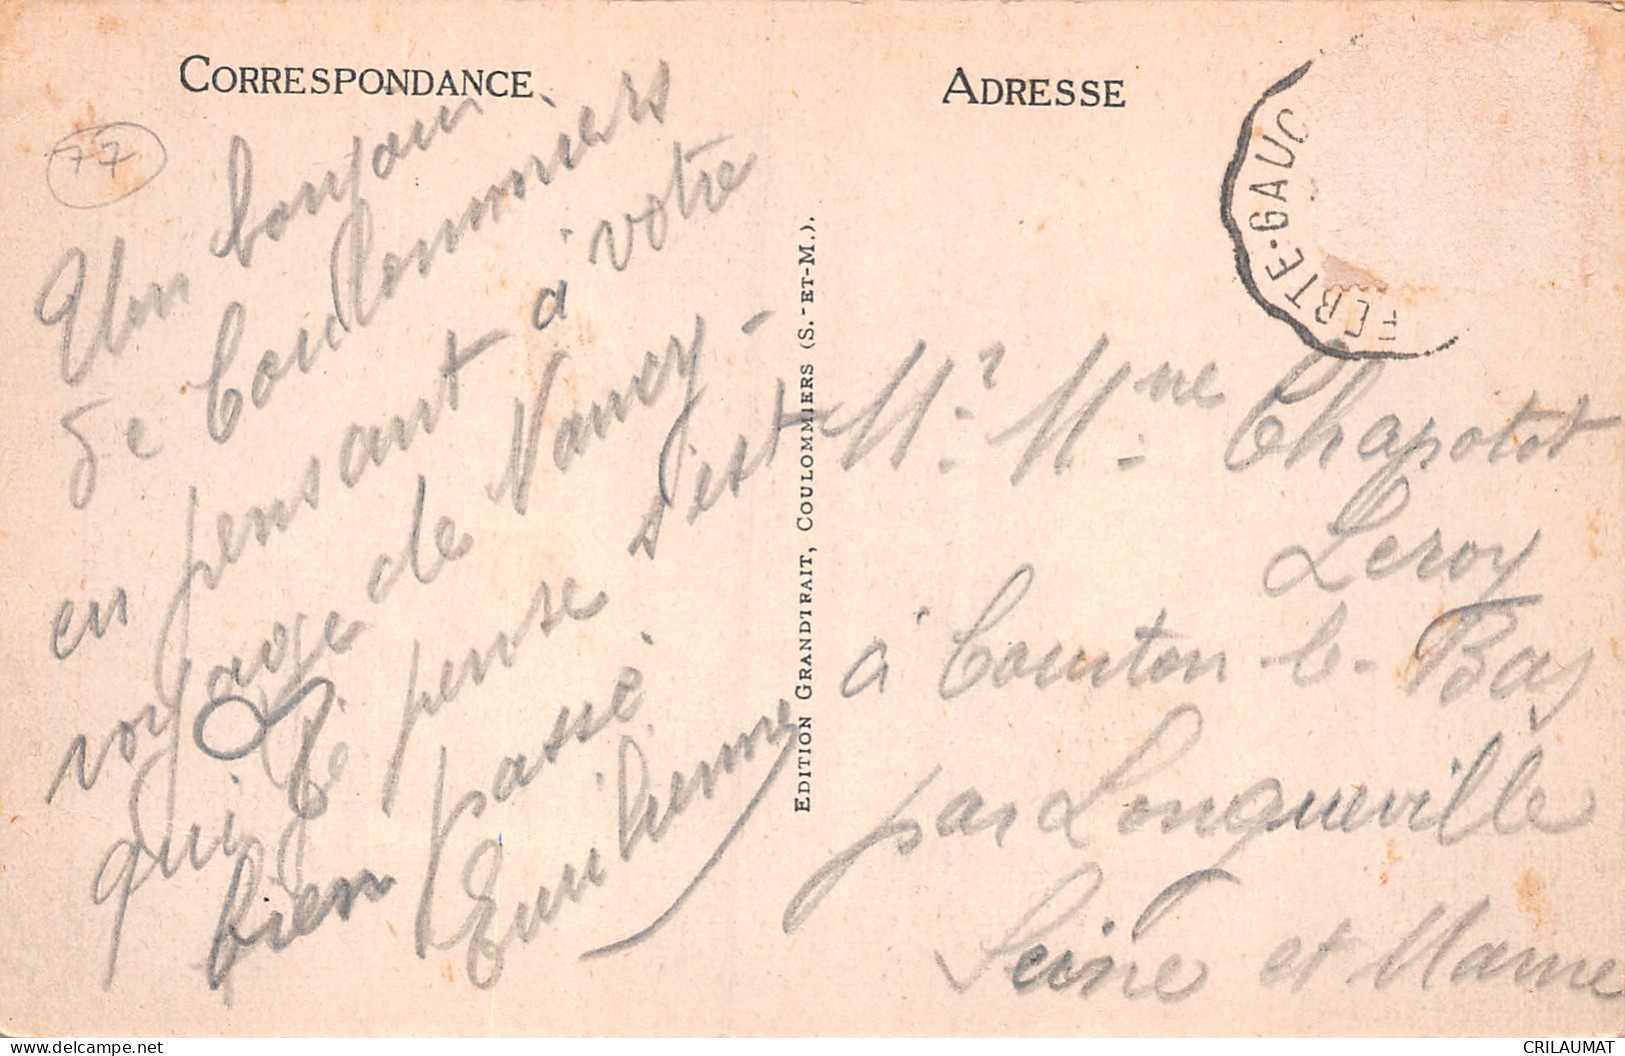 CORRESPONDANCE
ADRESSE
77
Un bonjour
de Coulommiers
en pensant à votre
voyage de Nancy -
qui je pense s'est
bien passé
EDITION GRANDTRAIT, COULOMMIERS (S.-ET-M.).
FERTE-GAUC
Mr. Mme Chapotot
Leroy
à Courton-le-Bas
par Longueville
Seine et Marne
delcampe.net
CRILAUMAT